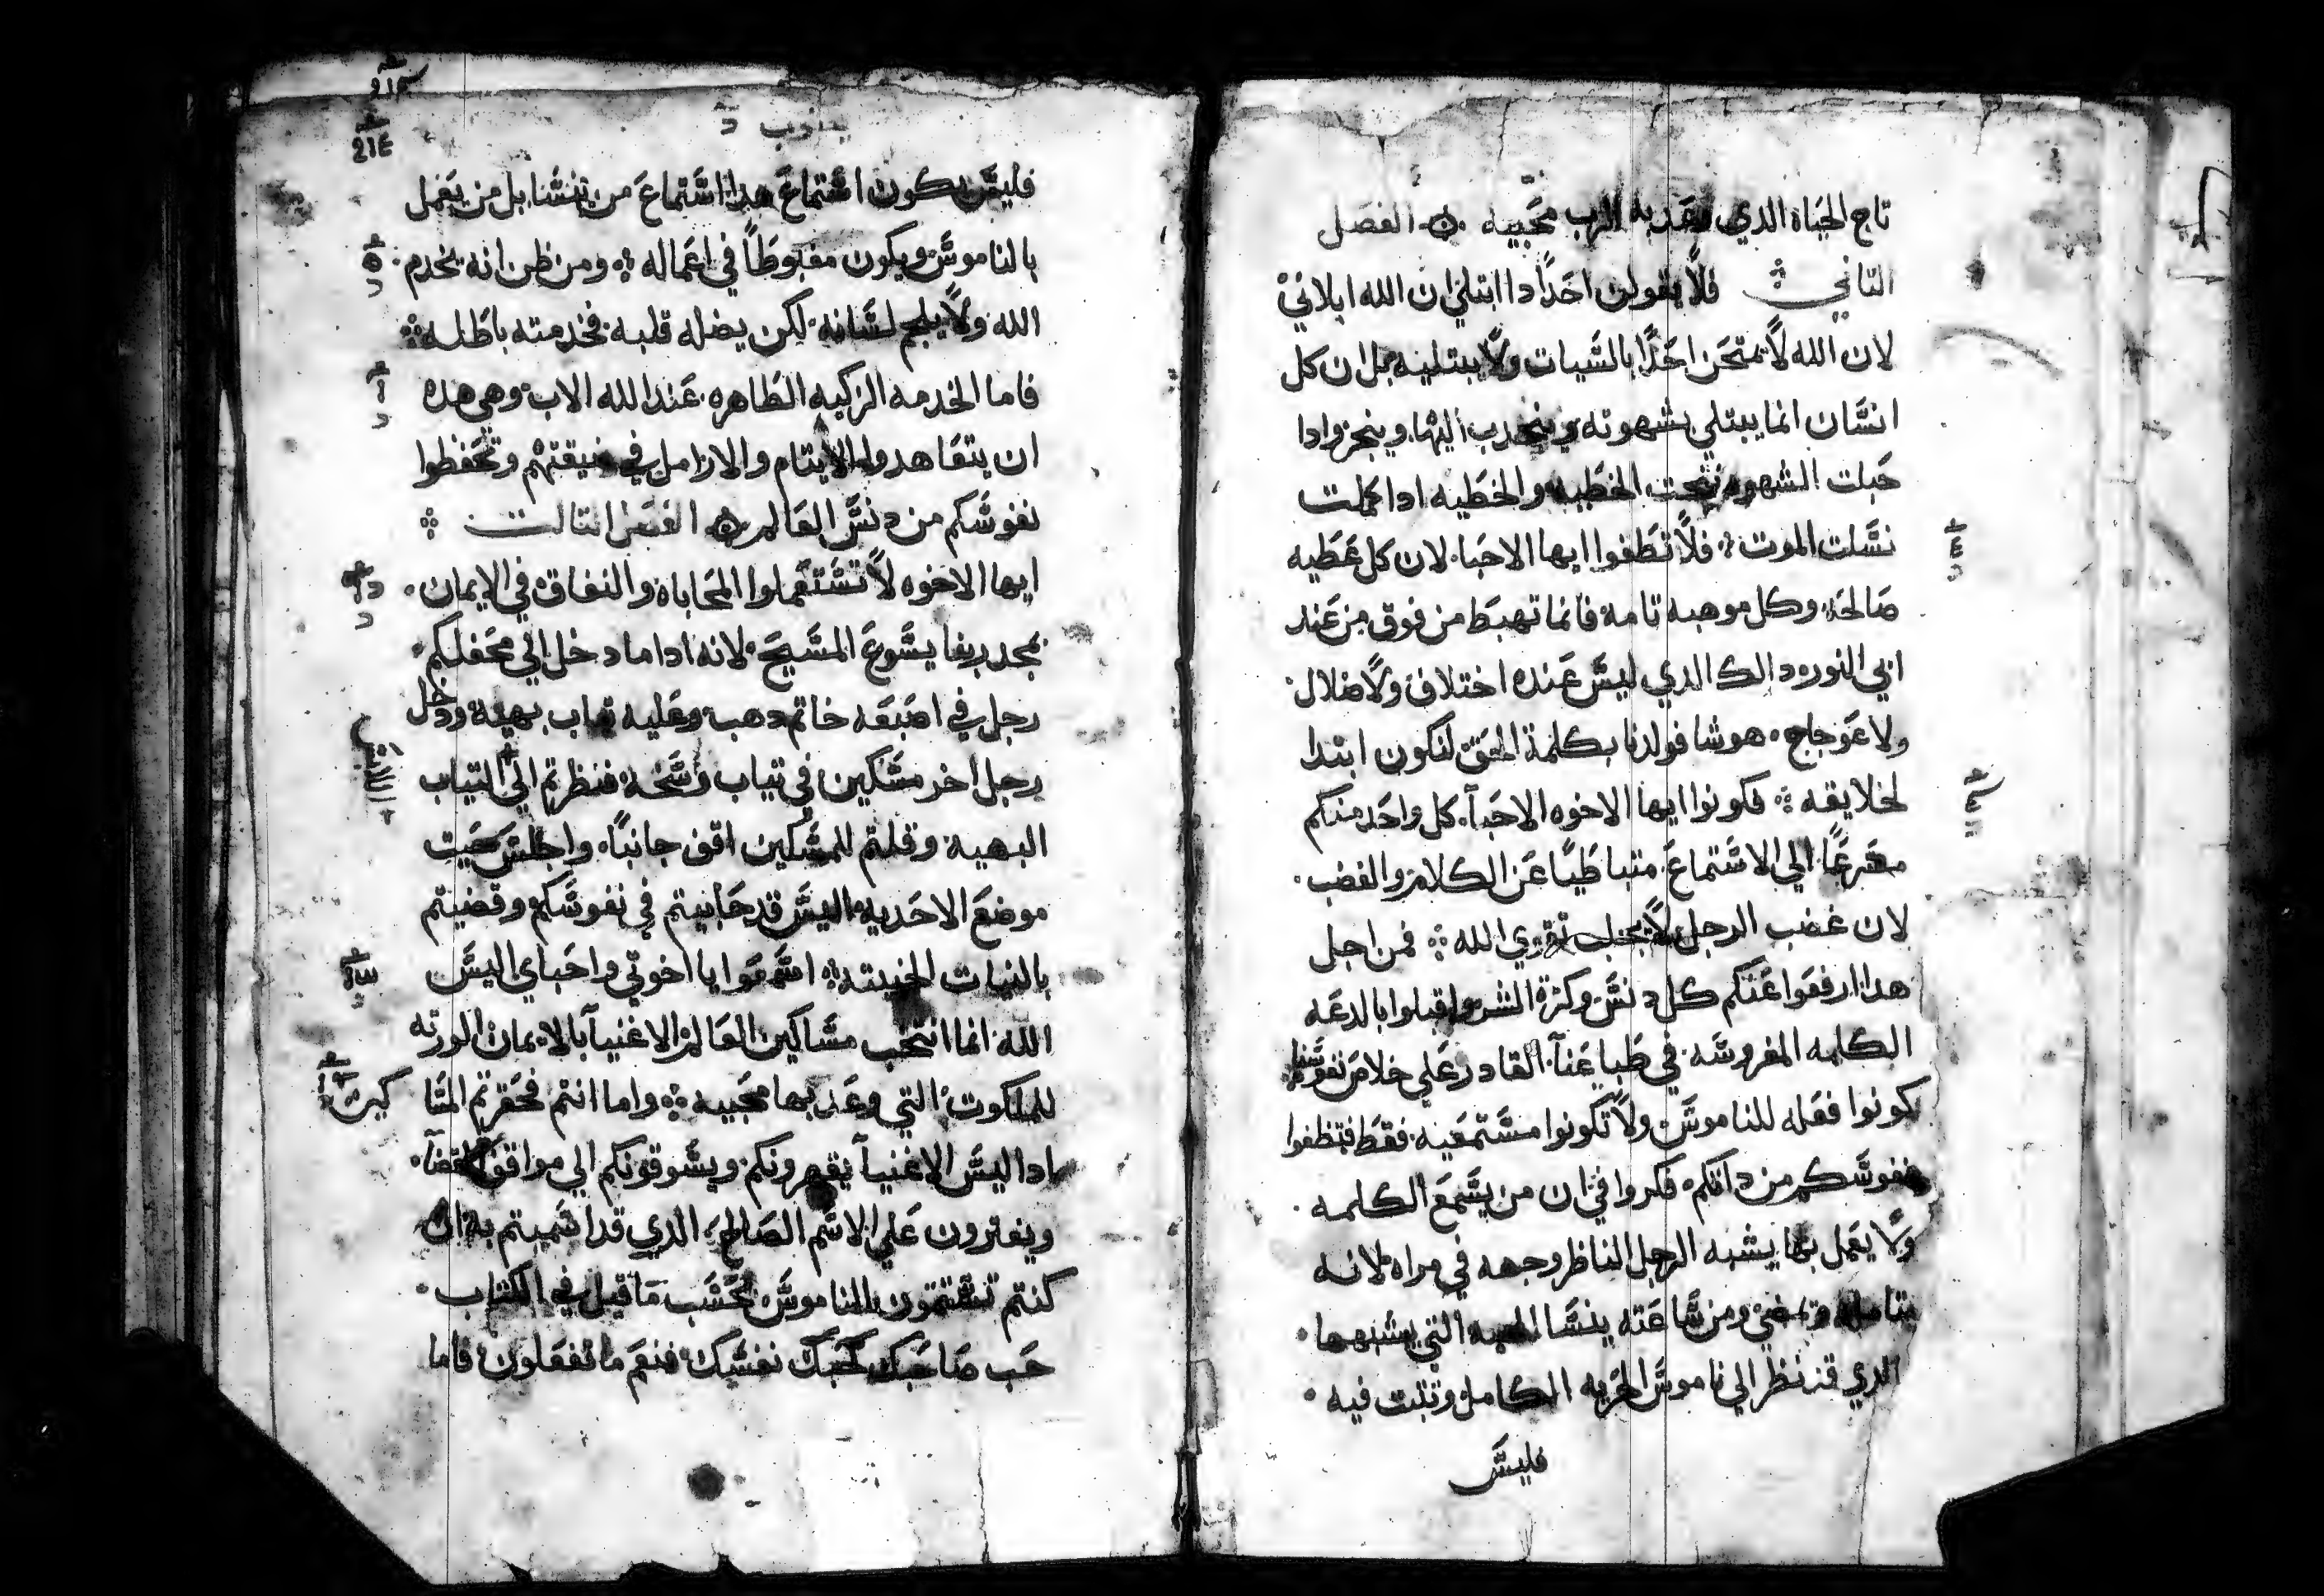 تاج الحياه الدي وعد به الرب محبيه ۞ الفصل
التاني فلا يقولن احدا ادا ابتلي ان الله ابلاني
لان الله لا يمتحن احدا بالسيات ولا يبتليه بل ان كل
انسان انما يبتلي بشهوته وينجدب اليها وينجر وادا
حبلت الشهوه نتجت الخطيه والخطيه ادا كملت
نسلت الموت فلا تطغوا ايها الاحبا لان كل عطيه
صالحه وكل موهبه تامه فانما تهبط من فوق من عند
ابي النور دالك الدي ليس عنده اختلاف ولا ضلال
ولا عوجاج هو شا فولدنا بكلمة الحق لنكون ابتدا
لخلايقه فكونوا ايها الاخوه الاحبا كل واحد منكم
مسرعا الي الاستماع متباطيا عن الكلام والغضب
لان غضب الرجل لا يجلب تقوي الله فمن اجل
هدا ارفعوا عنكم كل دنس وكثرة الشر واقبلوا بالدعه
الكلمه المغروسه في طباعنا القادر علي خلاص نفوسنا
كونوا فعله للناموس ولا تكونوا مستمعيه فقط فتطغوا
نفوسكم من داتكم فكروا في ان من يسمع الكلمه
ولا يعمل بها يشبه الرجل الناظر وجهه في مراه لانه
يتامله ويمضي ومن ساعته ينسا التي يشبهها
الدي قد نظر الي ناموس الحريه الكامل وتبت فيه
فليس
214
214
يعقوب
فليس يكون استماع هدا استماع من ينسا بل من يعمل
بالناموس ويكون مغبوطا في اعماله ومن ظن انه يخدم
الله ولا يلجم لسانه لكن يضله قلبه فخدمته باطله
فاما الخدمه الزكيه الطاهره عند الله الاب وهي هده
ان يتعاهدوا الايتام والارامل في ضيقتهم وتحفظوا
نفوسكم من دنس العالم ۞ الفصل التالت
ايها الاخوه لا تستعملوا المحاباه والنفاق في الايمان
بمجد ربنا يسوع المسيح لانه ادا ما دخل الي محفلكم
رجل في اصبعه خاتم دهب وعليه تياب بهيه ودخل
رجل اخر مسكين في تياب وسخه فنظرتم الي التياب
البهيه وقلتم للمسكين اقف جانبا واجلس حيت
موضع الاحديه اليس قد حابيتم في نفوسكم وقضيتم
بالنيات الخبيته اسمعوا يا اخوتي واحباي اليس
الله انما انتخب مساكين العالم الاغنيا بالايمان الورته
للملكوت التي وعد بها محبيه واما انتم فحقرتم المسا
كين
ادا اليس الاغنيا يقهرونكم ويسوقونكم الي مواقف القضا
ويفترون علي الاسم الصالح الدي قد اسميتم به ان
كنتم تستتمون بالناموس بحسب ما قيل في الكتاب
حب صاحبك كحبك نفسك فنعم ما تفعلون فاما